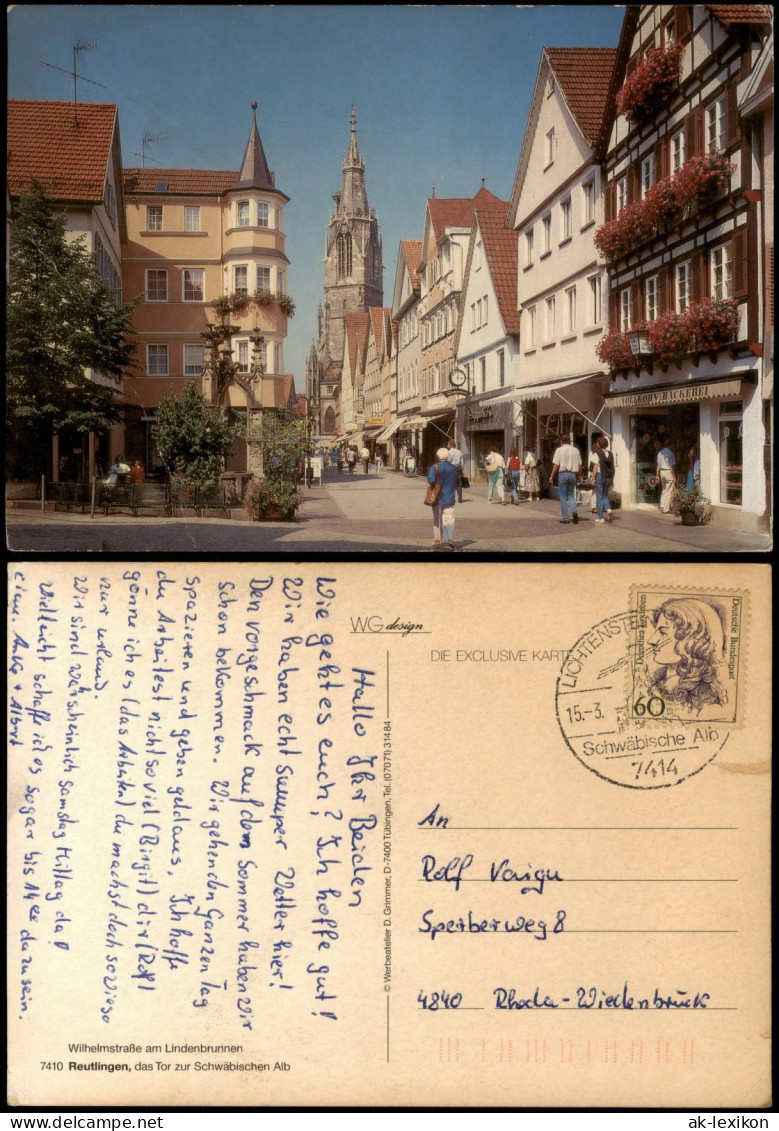 VOLKOHS BÄCKEREI
Hallo Ihr Beiden
Wie geht es euch? Ich hoffe gut!
Wir haben echt sumper Wetter hier!
Den vorgeschmack auf dem Sommer haben Wir
schon bekommen. Wir gehen den Ganzen Tag
spazieren und geben geld aus. Ich hoffe
du Arbeitest nicht so viel (Birgit) dir (Rolf)
gönne ich es (das Arbeiten) du machst doch sowieso
nur urlaub.
Wir sind warscheinlich Samstag Mittag da!
Vielleicht schaffe ich es sogar bis 14 da zu sein.
+ Albert
Wilhelmstraße am Lindenbrunnen
7410 Reutlingen, das Tor zur Schwäbischen Alb
© Werbeatelier D. Grimmer, D-7400 Tübingen, Tel. (07071) 31484
WG design
DIE EXCLUSIVE KARTE
LICHTENSTE
15.-3.
Schwäbische Alb
7414
Dorothea Erxleben
Deutsche Bundespost
60
An
Rolf Vaigu
Sperberweg 8
4840 Rheda-Wiedenbrück
www.ansichtskarten-lexikon.de
ak-lexikon